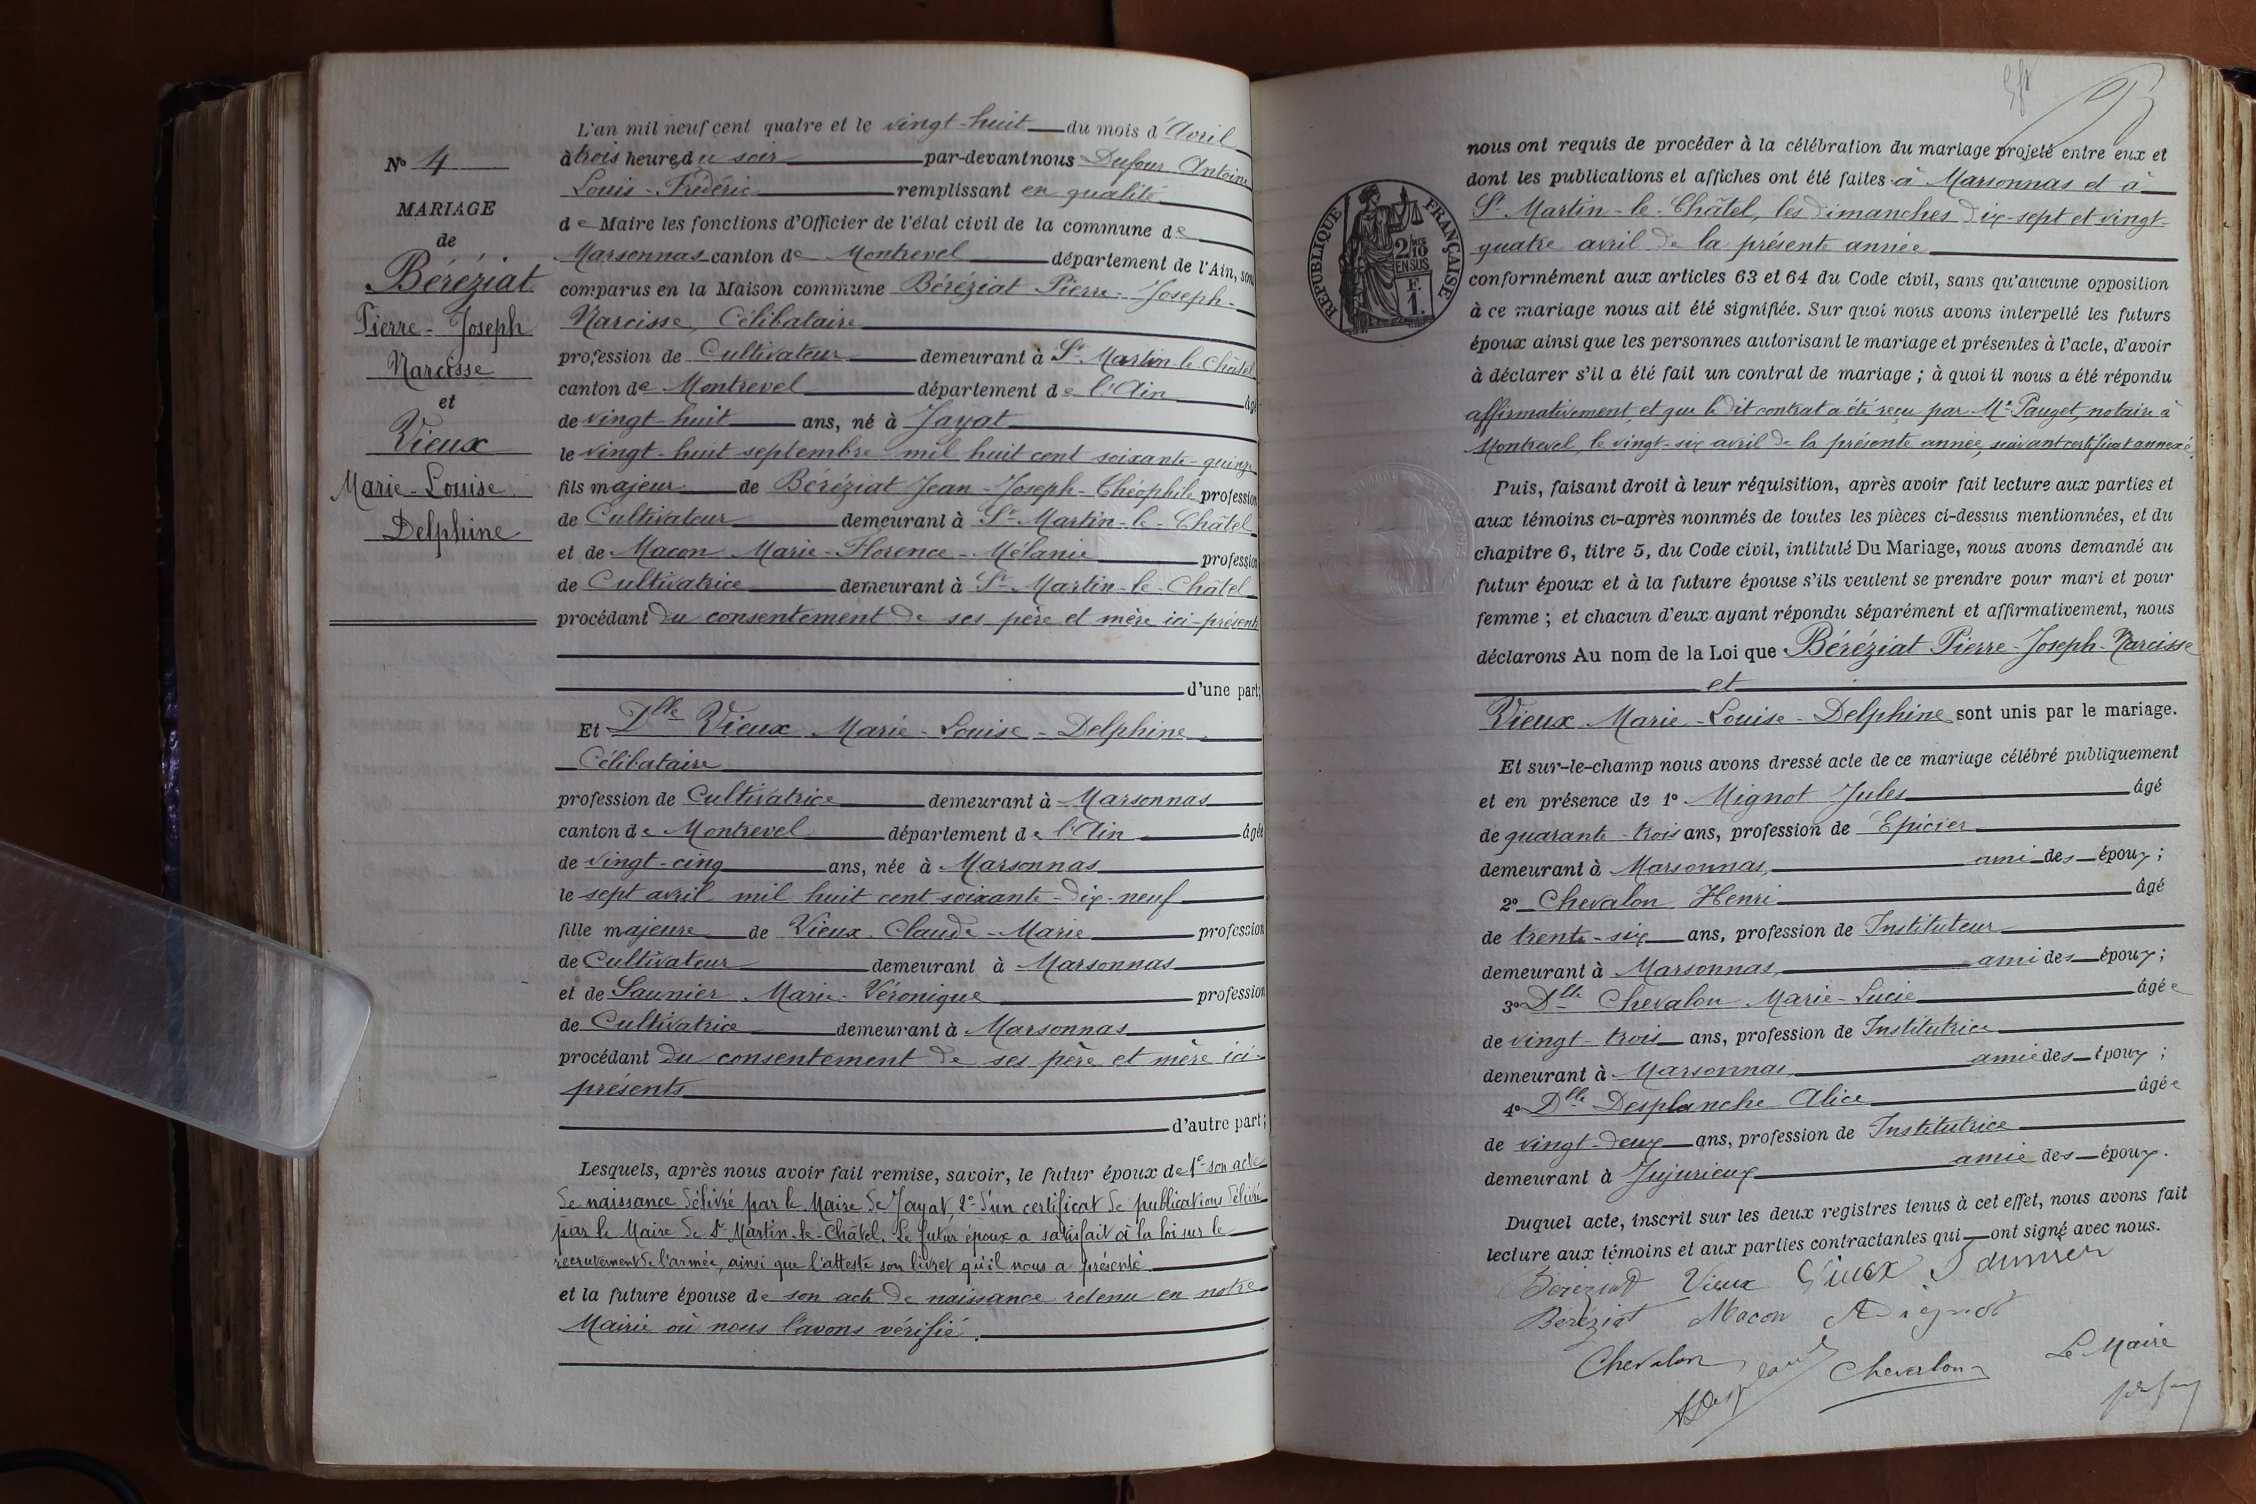 N° 4
MARIAGE
de
Béréziat
Pierre-Joseph
Narcisse
et
Vieux
Marie-Louise
Delphine
L'an mil neuf cent quatre et le vingt-huit du mois d'Avril
à trois heures du soir par-devant nous Dufour Antoine
Louis-Frédéric remplissant en qualité
de Maire les fonctions d'Officier de l'état civil de la commune de
Marsonnas canton de Montrevel département de l'Ain, sont
comparus en la Maison commune Béréziat Pierre-Joseph-
Narcisse, Célibataire
profession de Cultivateur demeurant à St Martin le Châtel
canton de Montrevel département de l'Ain âgé
de vingt-huit ans, né à Jayat
le vingt-huit septembre mil huit cent soixante-quinze
fils majeur de Béréziat Jean-Joseph-Théophile profession
de Cultivateur demeurant à St Martin-le-Châtel
et de Macon Marie-Florence-Mélanie profession
de Cultivatrice demeurant à St Martin-le-Châtel
procédant du consentement de ses père et mère ici-présents
d'une part;
Et Dlle Vieux Marie-Louise-Delphine
Célibataire
profession de Cultivatrice demeurant à Marsonnas
canton de Montrevel département de l'Ain âgée
de vingt-cinq ans, née à Marsonnas
le sept avril mil huit cent soixante-dix-neuf
fille majeure de Vieux Claude-Marie profession
de Cultivateur demeurant à Marsonnas
et de Saunier Marie-Véronique profession
de Cultivatrice demeurant à Marsonnas
procédant du consentement de ses père et mère ici-
présents
d'autre part;
Lesquels, après nous avoir fait remise, savoir, le futur époux de 1° son acte
de naissance délivré par le Maire de Jayat, 2° d'un certificat de publications délivré
par le Maire de St Martin-le-Châtel. Le futur époux a satisfait à la loi sur le
recrutement de l'armée, ainsi que l'atteste son livret qu'il nous a présenté.
et la future épouse de son acte de naissance retenu en notre
Mairie où nous l'avons vérifié.
nous ont requis de procéder à la célébration du mariage projeté entre eux et
dont les publications et affiches ont été faites à Marsonnas et à
St Martin-le-Châtel, les dimanches dix-sept et vingt-
quatre avril de la présente année
conformément aux articles 63 et 64 du Code civil, sans qu'aucune opposition
à ce mariage nous ait été signifiée. Sur quoi nous avons interpellé les futurs
époux ainsi que les personnes autorisant le mariage et présentes à l'acte, d'avoir
à déclarer s'il a été fait un contrat de mariage ; à quoi il nous a été répondu
affirmativement, et que le dit contrat a été reçu par Me Pauget, notaire à
Montrevel, le vingt-six avril de la présente année, suivant certificat annexé.
RÉPUBLIQUE FRANÇAISE
2/10
EN SUS
F.
1.
Puis, faisant droit à leur réquisition, après avoir fait lecture aux parties et
aux témoins ci-après nommés de toutes les pièces ci-dessus mentionnées, et du
chapitre 6, titre 5, du Code civil, intitulé Du Mariage, nous avons demandé au
futur époux et à la future épouse s'ils veulent se prendre pour mari et pour
femme ; et chacun d'eux ayant répondu séparément et affirmativement, nous
déclarons Au nom de la Loi que Béréziat Pierre-Joseph-Narcisse
et
Vieux Marie-Louise-Delphine sont unis par le mariage.
Et sur-le-champ nous avons dressé acte de ce mariage célébré publiquement
et en présence de 1° Mignot Jules âgé
de quarante-trois ans, profession de Epicier
demeurant à Marsonnas, ami des époux ;
2° Chevalon Henri âgé
de trente-six ans, profession de Instituteur
demeurant à Marsonnas, ami des époux ;
3° Dlle Chevalon Marie-Lucie âgée
de vingt-trois ans, profession de Institutrice
demeurant à Marsonnas, amie des époux ;
4° Dlle Desplanche Alice âgée
de vingt-deux ans, profession de Institutrice
demeurant à Jujurieux amie des époux.
Duquel acte, inscrit sur les deux registres tenus à cet effet, nous avons fait
lecture aux témoins et aux parties contractantes qui ont signé avec nous.
Béréziat Vieux Vieux Saunier
Béréziat Macon Mignot
Chevalon Chevalon Le Maire